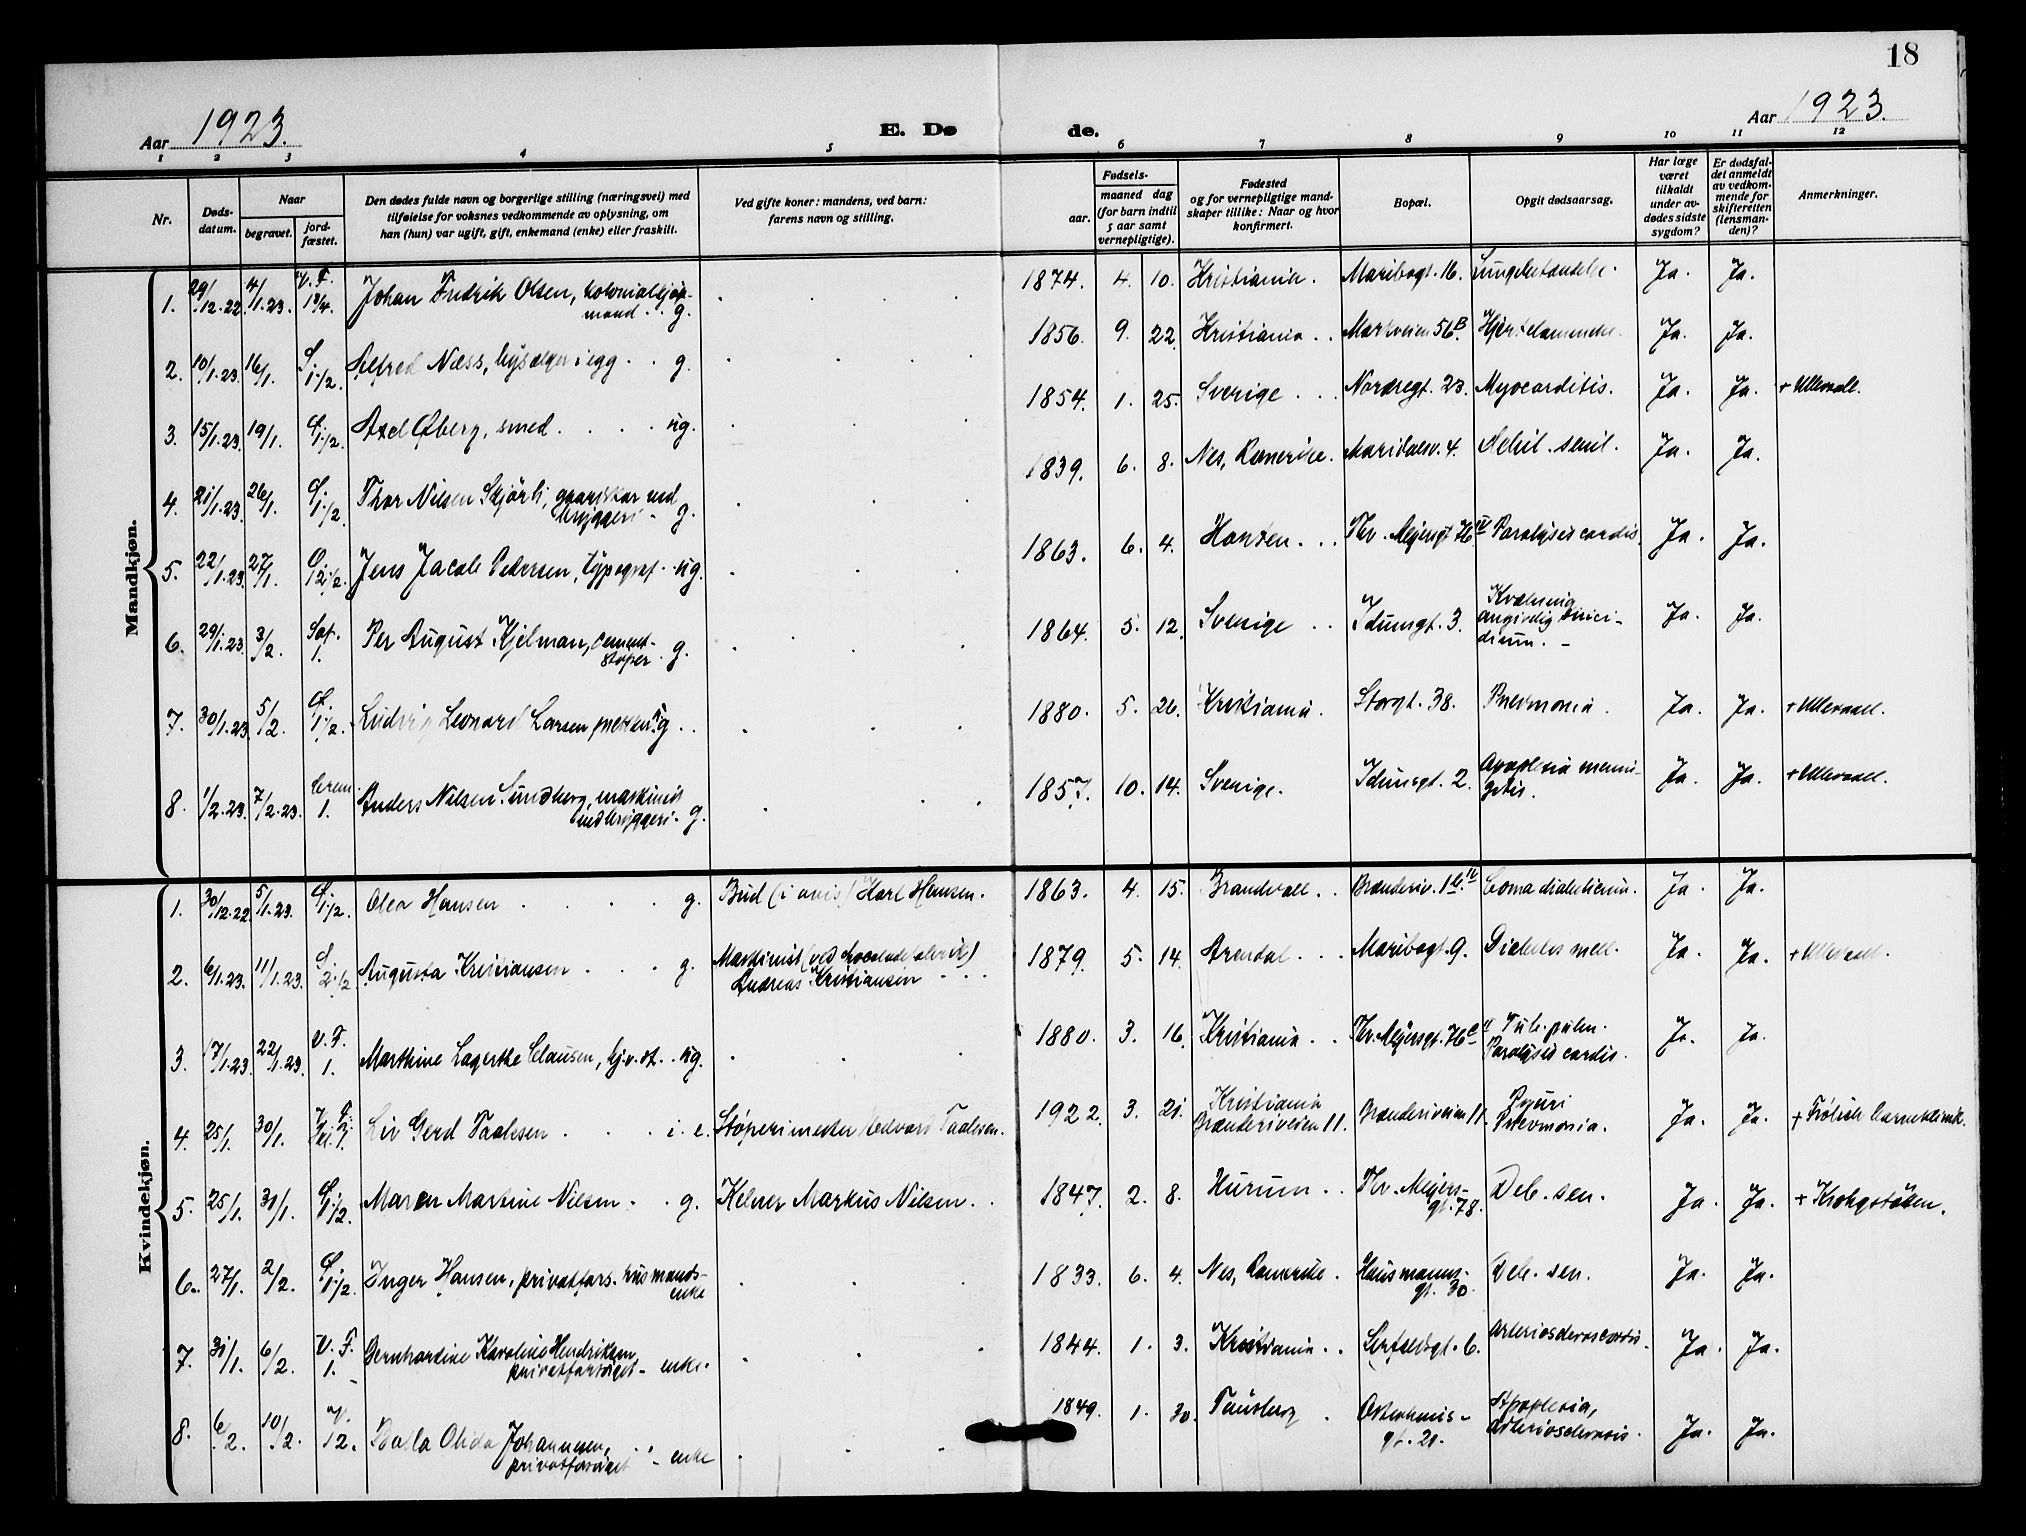 18
Aar 1923.
E. Dø
de.
Aar 1923.
1 2 3 4 5 6 7 8 9 10 11 12
Nr.
Døds-
datum.
Naar
begravet.
jord-
fæstet.
Den dødes fulde navn og borgerlige stilling (næringsvei) med
tilføielse for voksnes vedkommende av oplysning, om
han (hun) var ugift, gift, enkemand (enke) eller fraskilt.
Ved gifte koner: mandens, ved barn:
farens navn og stilling.
Fødsels-
aar.
maaned dag
(for barn indtil
5 aar samt
vernepligtige).
Fødested
og for vernepligtige mand-
skaper tillike: Naar og hvor
konfirmert.
Bopæl.
Opgit dødsaarsag.
Har læge
været
tilkaldt
under av-
dødes sidste
sygdom?
Er dødsfal-
det anmeldt
av vedkom-
mende for
skifteretten
(lensman-
den)?
Anmerkninger.
Mandkjøn.
1. 29/12.22 4/1.23. V. F. Johan Fredrik Olsen, kolonialkjøp-
mand . . g. 1874. 4. 10. Kristiania. Maribogt. 16. Lungebetændelse. Ja. Ja.
2. 10/1.23. 16/1. 1/2. Alfred Næss, bysælger i egg . . g. 1856. 9. 22. Kristiania . . Markveien 56B. Ja. Ja.
3. 15/1.23. 19/1. 1/2. Axel Øberg, smed . . . . ug. 1854. 1. 25. Sverige . . . Nordregt. 23. Myocarditis. Ja. Ja. + Ullevaal.
4. 21/1.23. 26/1. 1/2. Thor Nilsen Skjørli, gaardskar ved
bryggeri - g. 1839. 6. 8. Nes, Romerike. Maridalsv. 4. Debil. senil. Ja. Ja.
5. 22/1.23. 27/1. 1/2. Jens Jacob Pedersen, typograf . . ug. 1863. 6. 4. Horten . . . Thv. Meyersgt. Paralysis cordis. Ja. Ja.
6. 29/1.23. 3/2. Sof. 1. Per August Kjelman, cement-
støper . g. 1864. 5. 12. Sverige . . Idunsgt. 3. Kvælning
angivelig suici-
dium. - Ja. Ja.
7. 30/1.23. 5/2. 1/2. Ludvig Leonard Larsen ug . . 1880. 5. 26. Kristiania. Storgt. 38. Pnevmonia. Ja. Ja. + Ullevaal.
8. 1/2.23. 7/2.23. Crem. 1. Anders Nilsen Sundberg, maskinist
ved bryggeri - g. 1857. 10. 14. Sverige. Idunsgt. 2. Apoplexia menin-
getis. Ja. Ja. + Ullevaal.
Kvindekjøn.
1. 30/12.22. 5/1.23. 1/2. Olea Hansen . . . . g. Bud (i avis) Karl Hansen. 1863. 4. 15. Brandvall . . Brænderiv. Coma diabeticum. Ja. Ja.
2. 6/1.23. 11/1.23. 1/2 Augusta Kristiansen . . . g. Maskinist (ved chocoladefabrik)
Andreas Kristiansen . . . 1879. 5. 14. Arendal . . . Maribogt. 9. Diabetes mell. Ja. Ja. + Ullevaal.
3. 17/1.23. 22/1.23. V. F. 1. Marthine Lagerthe Clausen, . . ug. 1880. 3. 16. Kristiania . . Thv. Meyersgt. Tub. pulm.
Paralysis cordis. Ja. Ja.
4. 25/1. 30/1. Liv Gerd Paalesen . . . i. e. Støperimester Edvard Paalesen. 1922. 3. 21. Kristiania
Grænderiveien 11. Grænderiveien 11. Pyuri
Pnevmonia. Ja. Ja. + Frölich barneklinik.
5. 25/1. 31/1. 1/2. Maren Martine Nilsen . . g. Kelner Markus Nilsen . . 1847. 2. 8. Hurum . . Thv. Meyers-
gt. 78. Deb. sen. Ja. Ja. + Krohgstøtten.
6. 27/1. 2/2. 1/2. Inger Hansen, privatfors. husmands-
enke 1833. 6. 4. Nes, Romerike. Hausmanns-
gt. 30. Deb. sen. Ja. Ja.
7. 31/1. 6/2. V. F. 1. Bernhardine Karoline Hendriksen
privatforsørget - enke. 1844. 1. 3. Kristiania . . Serfeldsgt. 6. Arteriosclerosis cordis. Ja. Ja.
8. 6/2. 10/2. V. 12. Olida Johannesen,
privatforsørget - enke 1849. 1. 30. Tønsberg . Osterhaus-
gt. 21. Apoplexia,
Arteriosclerosis. Ja. Ja.